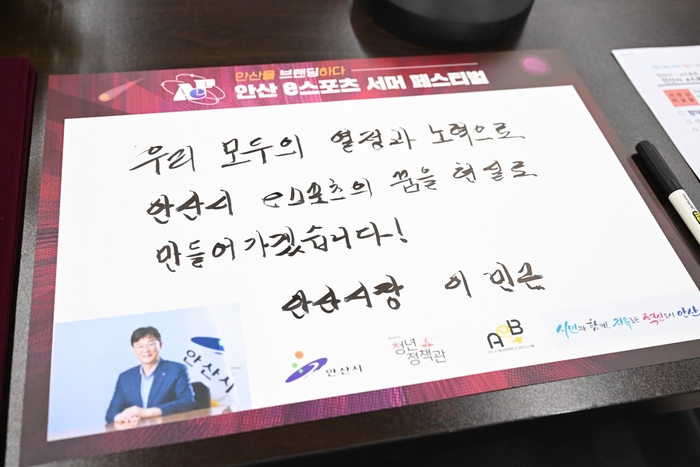 안산을 브랜딩하다
안산 e스포츠 서머 페스티벌
우리 모두의 열정과 노력으로
안산시 e스포츠의 꿈을 현실로
만들어가겠습니다!
안산시장 이민근
안산시
안산시
청년
정책관
시민과 함께, 자유로운 혁신도시 안산